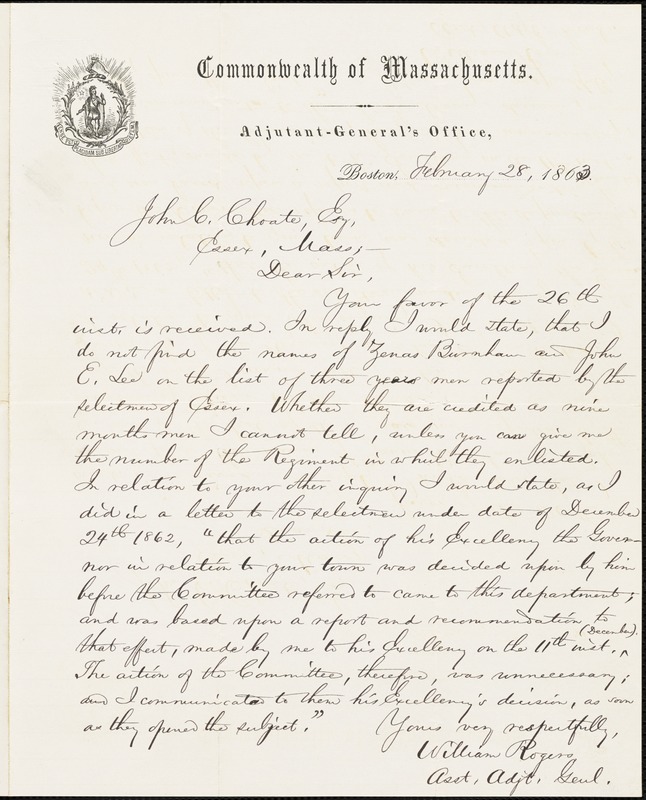 Commonwealth of Massachusetts.
Adjutant-General's Office,
Boston, February 28, 1863.
John C. Choate, Esq,
Essex, Mass;—
Dear Sir,
Your favor of the 26th
inst. is received. In reply I would state, that I
do not find the names of Zenas Burnham and John
E. Lee on the list of three years men reported by the
selectmen of Essex. Whether they are credited as nine
months men I cannot tell, unless you can give me
the number of the Regiment in which they enlisted.
In relation to your other inquiry I would state, as I
did in a letter to the selectmen under date of December
24th 1862, "that the action of his Excellency the Gover-
nor in relation to your town was decided upon by him
before the Committee referred to came to this department;
and was based upon a report and recommendation to
that effect, made by me to his Excellency on the 11th inst. ^ (December).
The action of the Committee, therefore, was unnecessary;
and I communicated to them his Excellency's decision, as soon
as they opened the subject."
Yours very respectfully,
William Rogers
Asst. Adjt. Genl.